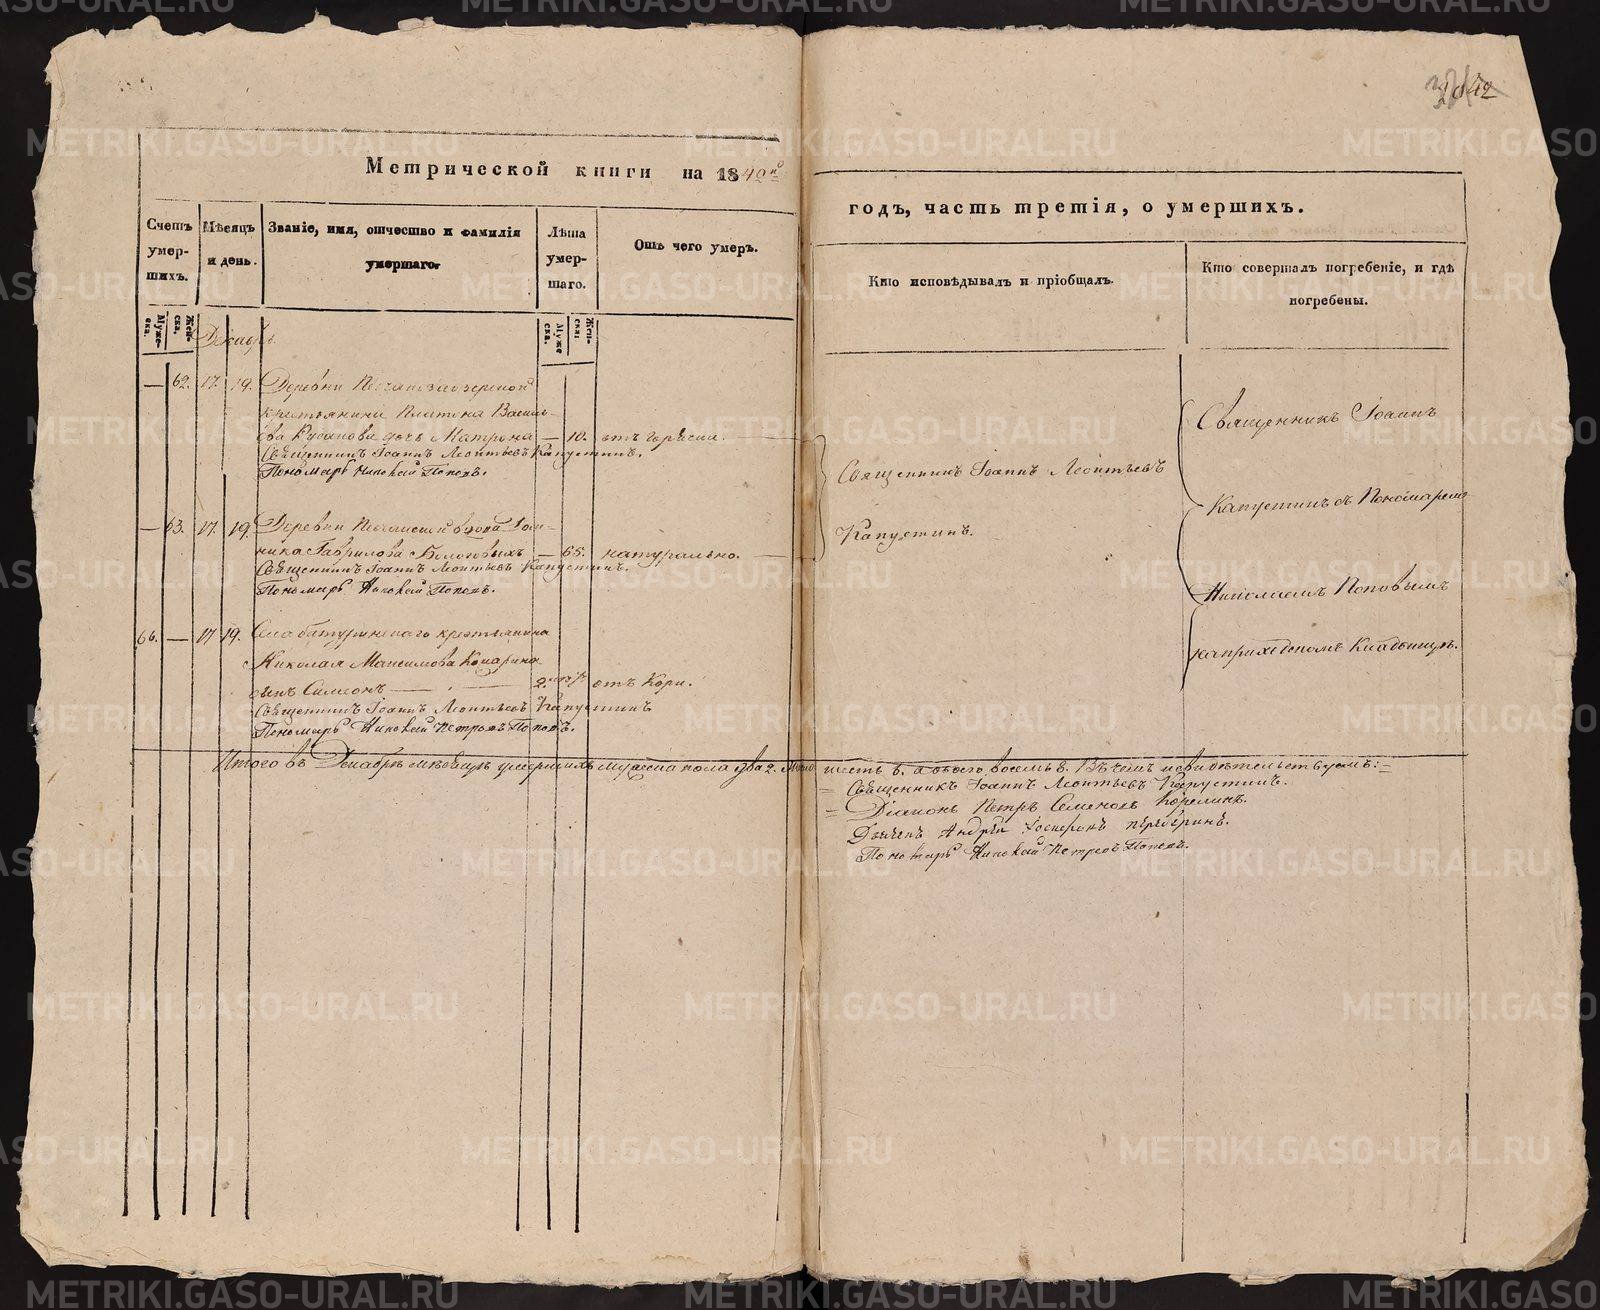 42
Метрической книги на 1840й
годъ, часть третія, о умершихъ.
Счетъ умер- шихъ.
Мѣсяцъ и день.
Званіе, имя, отчество и фамилія умершаго.
Лѣта умер- шаго.
Отъ чего умеръ.
Кто исповѣдывалъ и пріобщалъ.
Кто совершалъ погребеніе, и гдѣ погребены.
Муже- ска.
Жен- ска.
Муже ска.
Жен- ска.
Декабрь
— 62. 17. 19. Деревни
крестьянина Платона Василь-
ева Русанова дочь Матрона — 10. отъ горячки.
Священникъ Іоаннъ Леонтьевъ Капустинъ.
Пономарь Николай Поповъ.
— 63. 17. 19. Деревни вдова
Гаврилова — 65. натурально.
Священникъ Іоаннъ Леонтьевъ Капустинъ.
Пономарь Николай Поповъ.
66. — 17 19. Села Батуринскаго крестьянина
Николая Максимова
сынъ Симеонъ — 2 отъ Кори.
Священникъ Іоаннъ Леонтьевъ Капустинъ
Пономарь Николай Петровъ Поповъ.
Священникъ Іоаннъ Леонтьевъ
Капустинъ.
Священникъ Іоаннъ
Капустинъ съ Пономаремъ
Николаемъ Поповымъ
на приходскомъ Кладбищѣ.
Итого въ Декабрѣ мѣсяцѣ умершихъ мужеска пола два 2. шесть 6. а всего восемь 8. Въ чемъ и свидѣтельствуемъ:
Священникъ Іоаннъ Леонтьевъ Капустинъ.
Діаконъ Петръ Семеновъ
Дьячекъ Андрей
Пономарь Николай Петровъ Поповъ.
METRIKI.GASO-URAL.RU